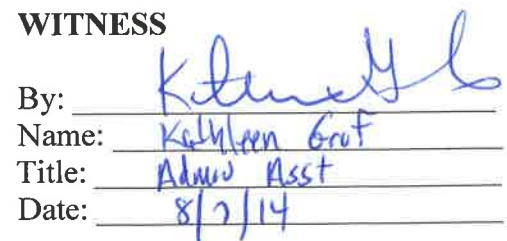 WITNESS
By:
Name: Kathleen
Title: Admin Asst
Date: 8/7/14